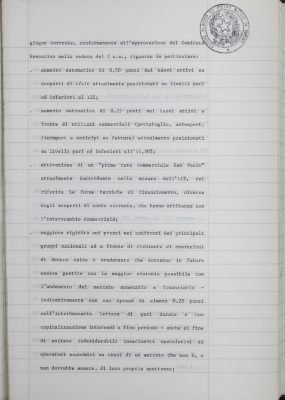 giugno corrente, conformemente all'approvazione del Comitato
Esecutivo nella seduta del 2 c.m., riguarda in particolare:
. aumento automatico di 0,50 punti dei tassi attivi su
scoperti di c/c attualmente posizionati su livelli pari
ed inferiori al 12%;
. aumento automatico di 0,25 punti sui tassi attivi a
fronte di utilizzi commerciali (portafoglio,
anticipi su fatture) attualmente posizionati
su livelli pari ed inferiori all'11,50%;
. attivazione di un "prime rate commerciale San Paolo"
attualmente individuato nella misura dell'11%, cui
riferire le forme tecniche di finanziamento, diverse
dagli scoperti di conto corrente, che hanno attinenza con
l'intercambio commerciale;
. maggiore rigidità sui prezzi nei confronti dei principali
gruppi nazionali ed a fronte di richieste di operazioni
di denaro caldo e scadenzate che dovranno in futuro
essere gestite con la maggior sintonia possibile con
l'andamento del mercato monetario e finanziario -
indicativamente con uno spread di almeno 0,25 punti
sull'interbancario lettera di pari durata e con
capitalizzazione interessi a fine periodo - anche al fine
di evitare indesiderabili inserimenti speculativi di
operatori economici su tassi di un mercato che non è, e
non dovrebbe essere, di loro propria spettanza;